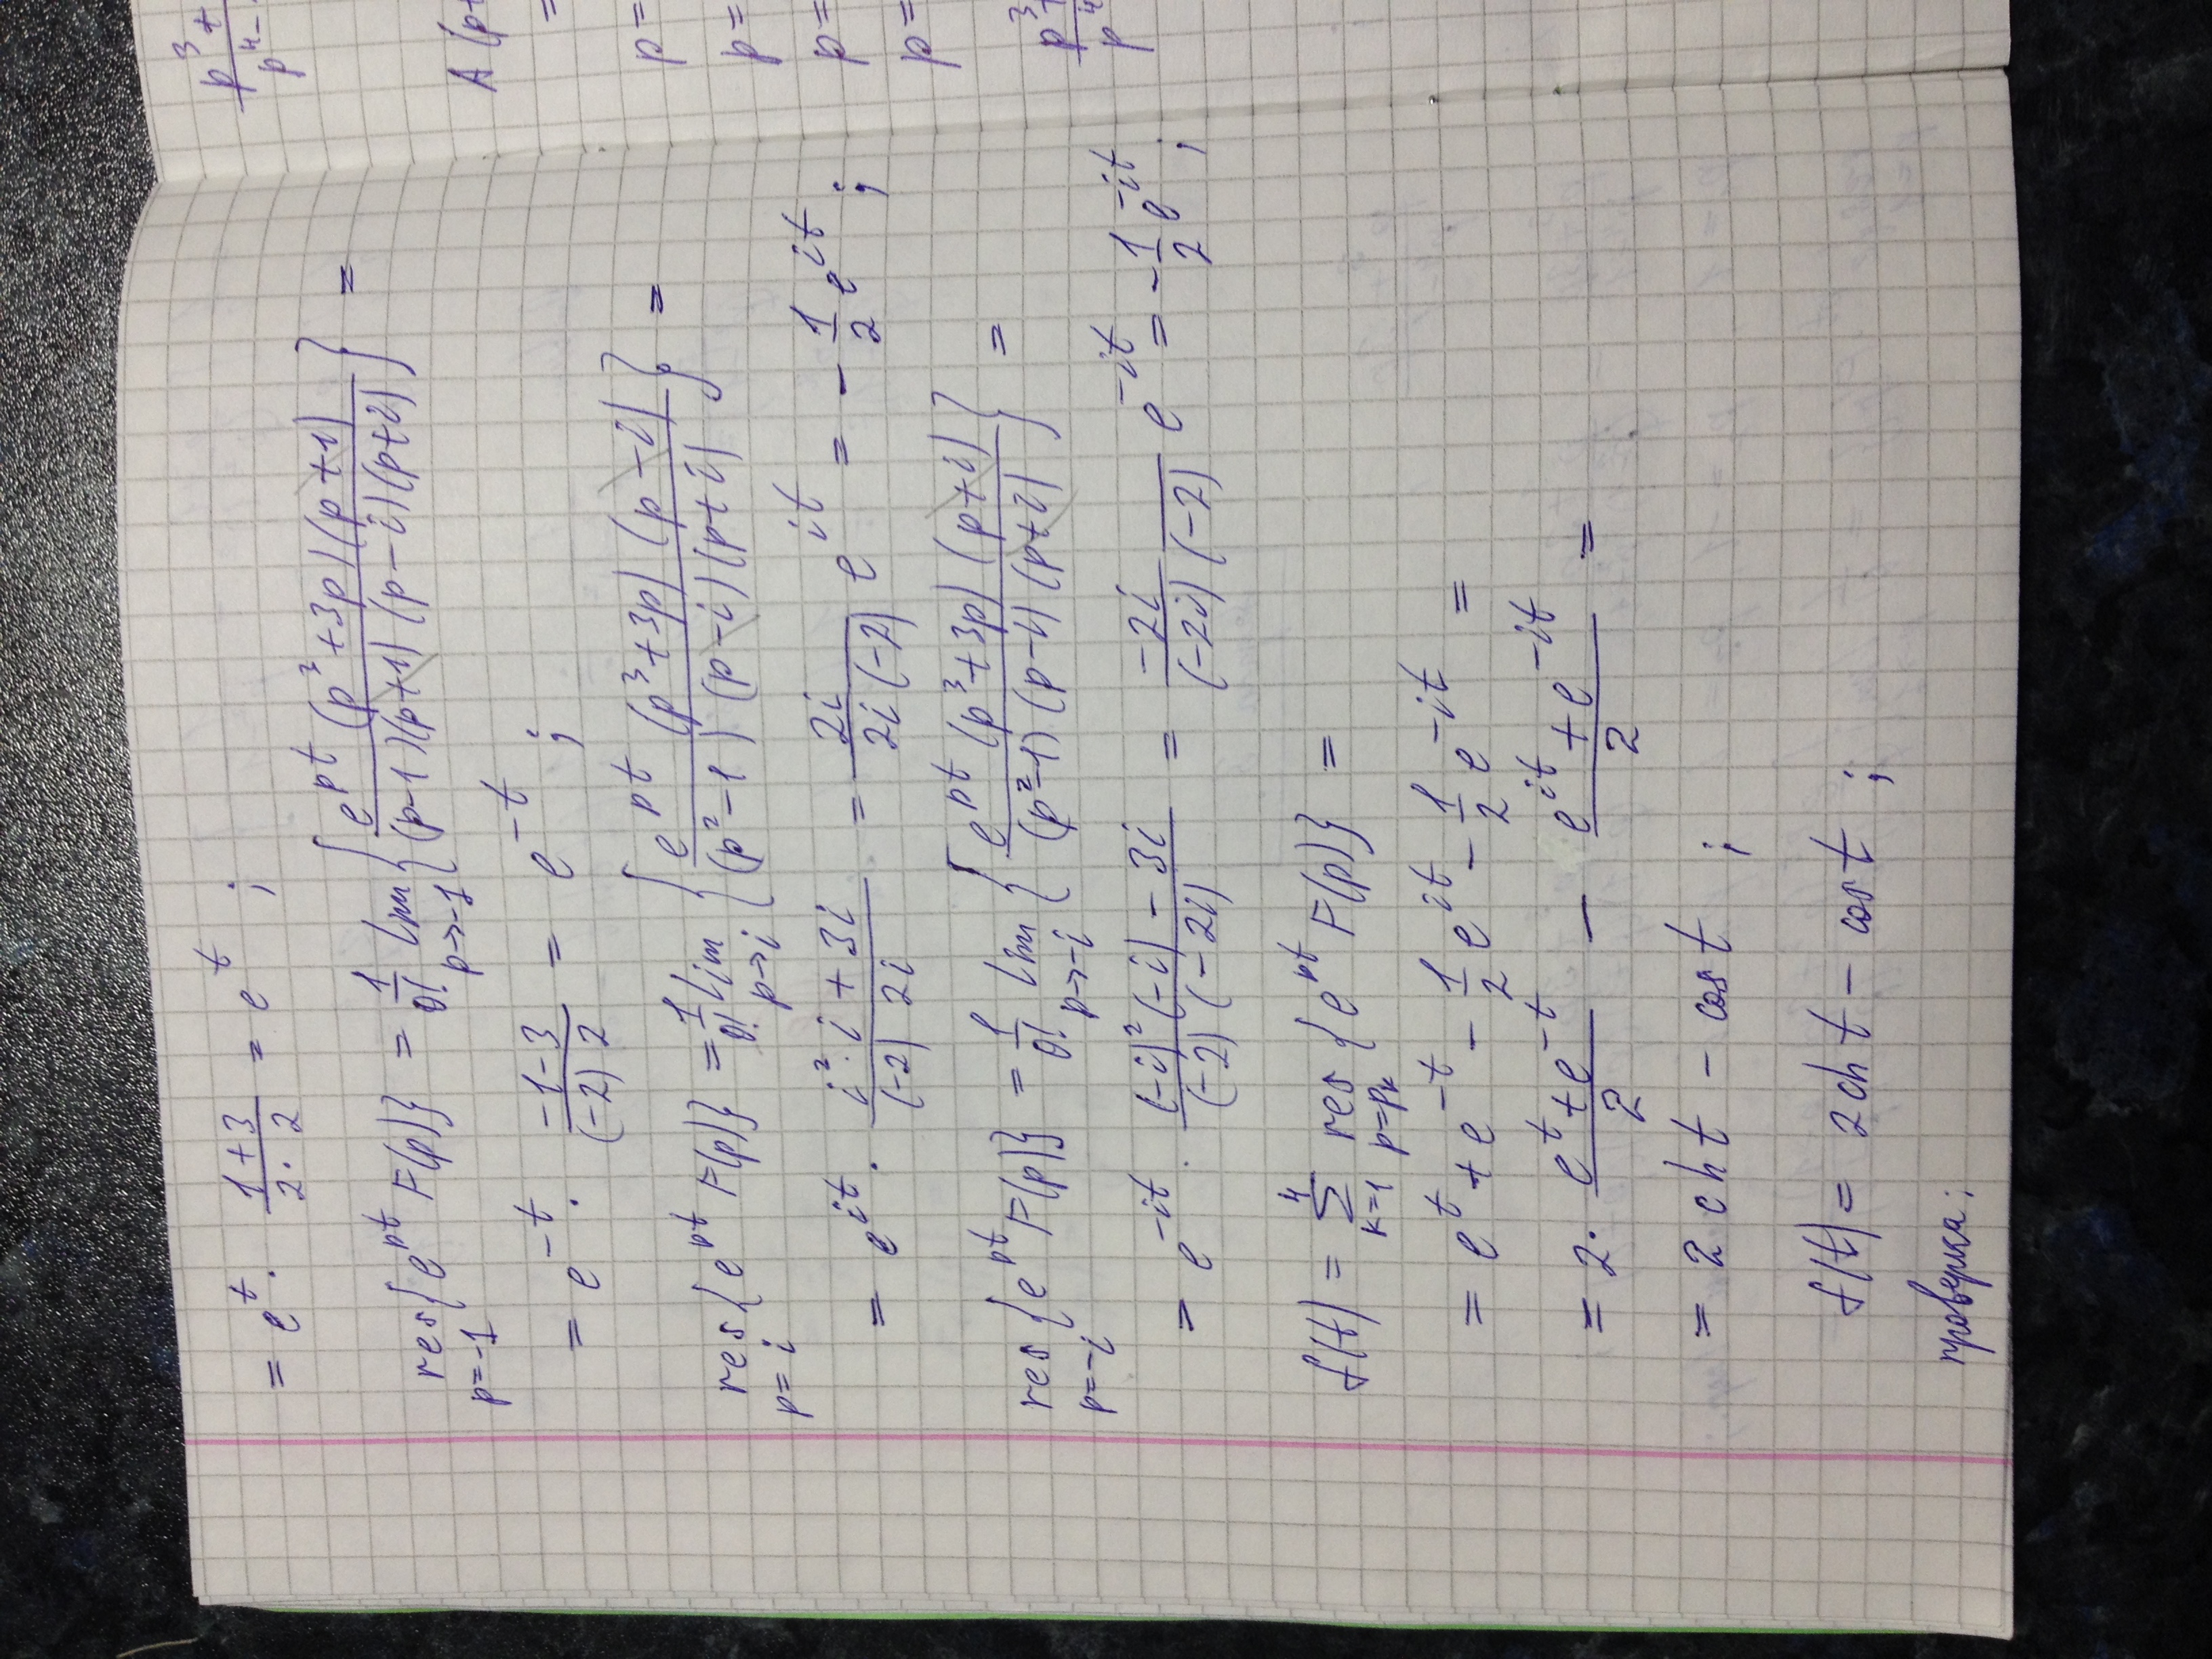 = e^t · (1+3)/(2·2) = e^t ;
res{e^{pt} F(p)} = 1/0! lim {e^{pt} (p³+3p)(p+1) / (p-1)(p+1)(p-i)(p+i)} =
p=-1 p→-1
= e^{-t} · (-1-3)/((-2)2) = e^{-t} ;
res{e^{pt} F(p)} = 1/0! lim {e^{pt} (p³+3p)(p-i) / (p²-1)(p-i)(p+i)} =
p=i p→i
= e^{it} · (i²·i+3i)/((-2) 2i) = 2i/(2i(-2)) e^{it} = -1/2 e^{it} ;
res{e^{pt} F(p)} = 1/0! lim {e^{pt} (p³+3p)(p+i) / (p²-1)(p-i)(p+i)} =
p=-i p→-i
= e^{-it} · ((-i)²(-i)-3i)/((-2)(-2i)) = -2i/((-2i)(-2)) e^{-it} = -1/2 e^{-it} ;
f(t) = Σ_{k=1}^{4} res_{p=p_k} {e^{pt} F(p)} =
= e^t + e^{-t} - 1/2 e^{it} - 1/2 e^{-it} =
= 2· (e^t+e^{-t})/2 - (e^{it}+e^{-it})/2 =
= 2 ch t - cos t ;
f(t) = 2 ch t - cos t ;
проверка:
p³+
p⁴-
A(p+
=
p=
p=
p=
p=
p³+
p⁴